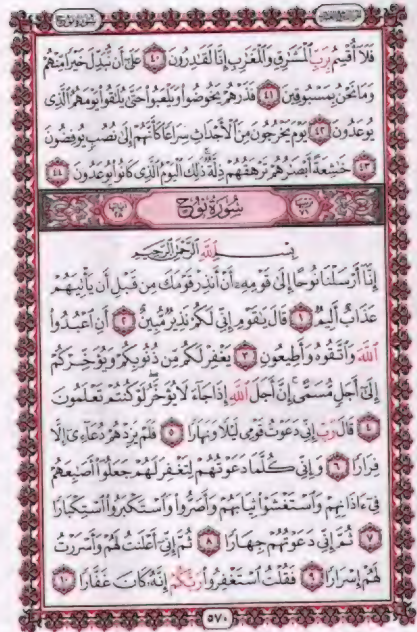 سورة نوح
فَلَا أُقْسِمُ بِرَبِّ الْمَشَارِقِ وَالْمَغَارِبِ إِنَّا لَقَادِرُونَ ٤٠ عَلَىٰ أَن نُّبَدِّلَ خَيْرًا مِّنْهُمْ
وَمَا نَحْنُ بِمَسْبُوقِينَ ٤١ فَذَرْهُمْ يَخُوضُوا وَيَلْعَبُوا حَتَّىٰ يُلَاقُوا يَوْمَهُمُ الَّذِي
يُوعَدُونَ ٤٢ يَوْمَ يَخْرُجُونَ مِنَ الْأَجْدَاثِ سِرَاعًا كَأَنَّهُمْ إِلَىٰ نُصُبٍ يُوفِضُونَ
٤٣ خَاشِعَةً أَبْصَارُهُمْ تَرْهَقُهُمْ ذِلَّةٌ ذَٰلِكَ الْيَوْمُ الَّذِي كَانُوا يُوعَدُونَ ٤٤
٧١ سُورَةُ نُوحٍ ٢٨
بِسْمِ اللَّهِ الرَّحْمَٰنِ الرَّحِيمِ
إِنَّا أَرْسَلْنَا نُوحًا إِلَىٰ قَوْمِهِ أَنْ أَنذِرْ قَوْمَكَ مِن قَبْلِ أَن يَأْتِيَهُمْ
عَذَابٌ أَلِيمٌ ١ قَالَ يَا قَوْمِ إِنِّي لَكُمْ نَذِيرٌ مُّبِينٌ ٢ أَنِ اعْبُدُوا
اللَّهَ وَاتَّقُوهُ وَأَطِيعُونِ ٣ يَغْفِرْ لَكُم مِّن ذُنُوبِكُمْ وَيُؤَخِّرْكُمْ
إِلَىٰ أَجَلٍ مُّسَمًّى إِنَّ أَجَلَ اللَّهِ إِذَا جَاءَ لَا يُؤَخَّرُ لَوْ كُنتُمْ تَعْلَمُونَ
٤ قَالَ رَبِّ إِنِّي دَعَوْتُ قَوْمِي لَيْلًا وَنَهَارًا ٥ فَلَمْ يَزِدْهُمْ دُعَائِي إِلَّا
فِرَارًا ٦ وَإِنِّي كُلَّمَا دَعَوْتُهُمْ لِتَغْفِرَ لَهُمْ جَعَلُوا أَصَابِعَهُمْ
فِي آذَانِهِمْ وَاسْتَغْشَوْا ثِيَابَهُمْ وَأَصَرُّوا وَاسْتَكْبَرُوا اسْتِكْبَارًا
٧ ثُمَّ إِنِّي دَعَوْتُهُمْ جِهَارًا ٨ ثُمَّ إِنِّي أَعْلَنتُ لَهُمْ وَأَسْرَرْتُ
لَهُمْ إِسْرَارًا ٩ فَقُلْتُ اسْتَغْفِرُوا رَبَّكُمْ إِنَّهُ كَانَ غَفَّارًا ١٠
٥٧٠